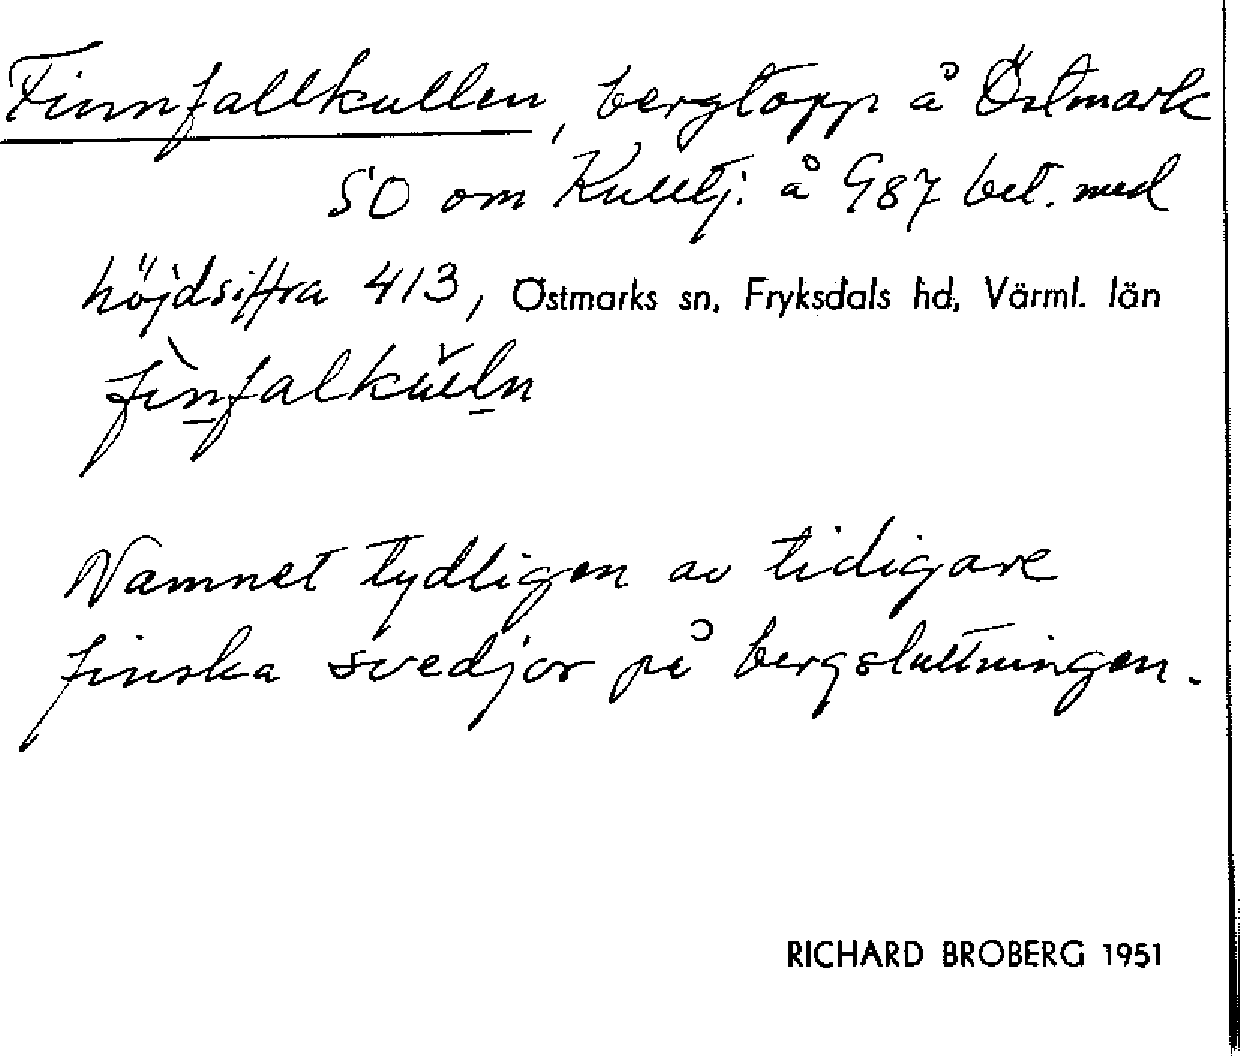 Finnfallkullen, bergtopp å Östmark
SO om Kulltj. å G87 bet. med
höjdsiffra 413, Östmarks sn, Fryksdals hd, Värml. län
Namnet tydligen av tidigare
finska svedjor på bergsluttningen.
RICHARD BROBERG 1951